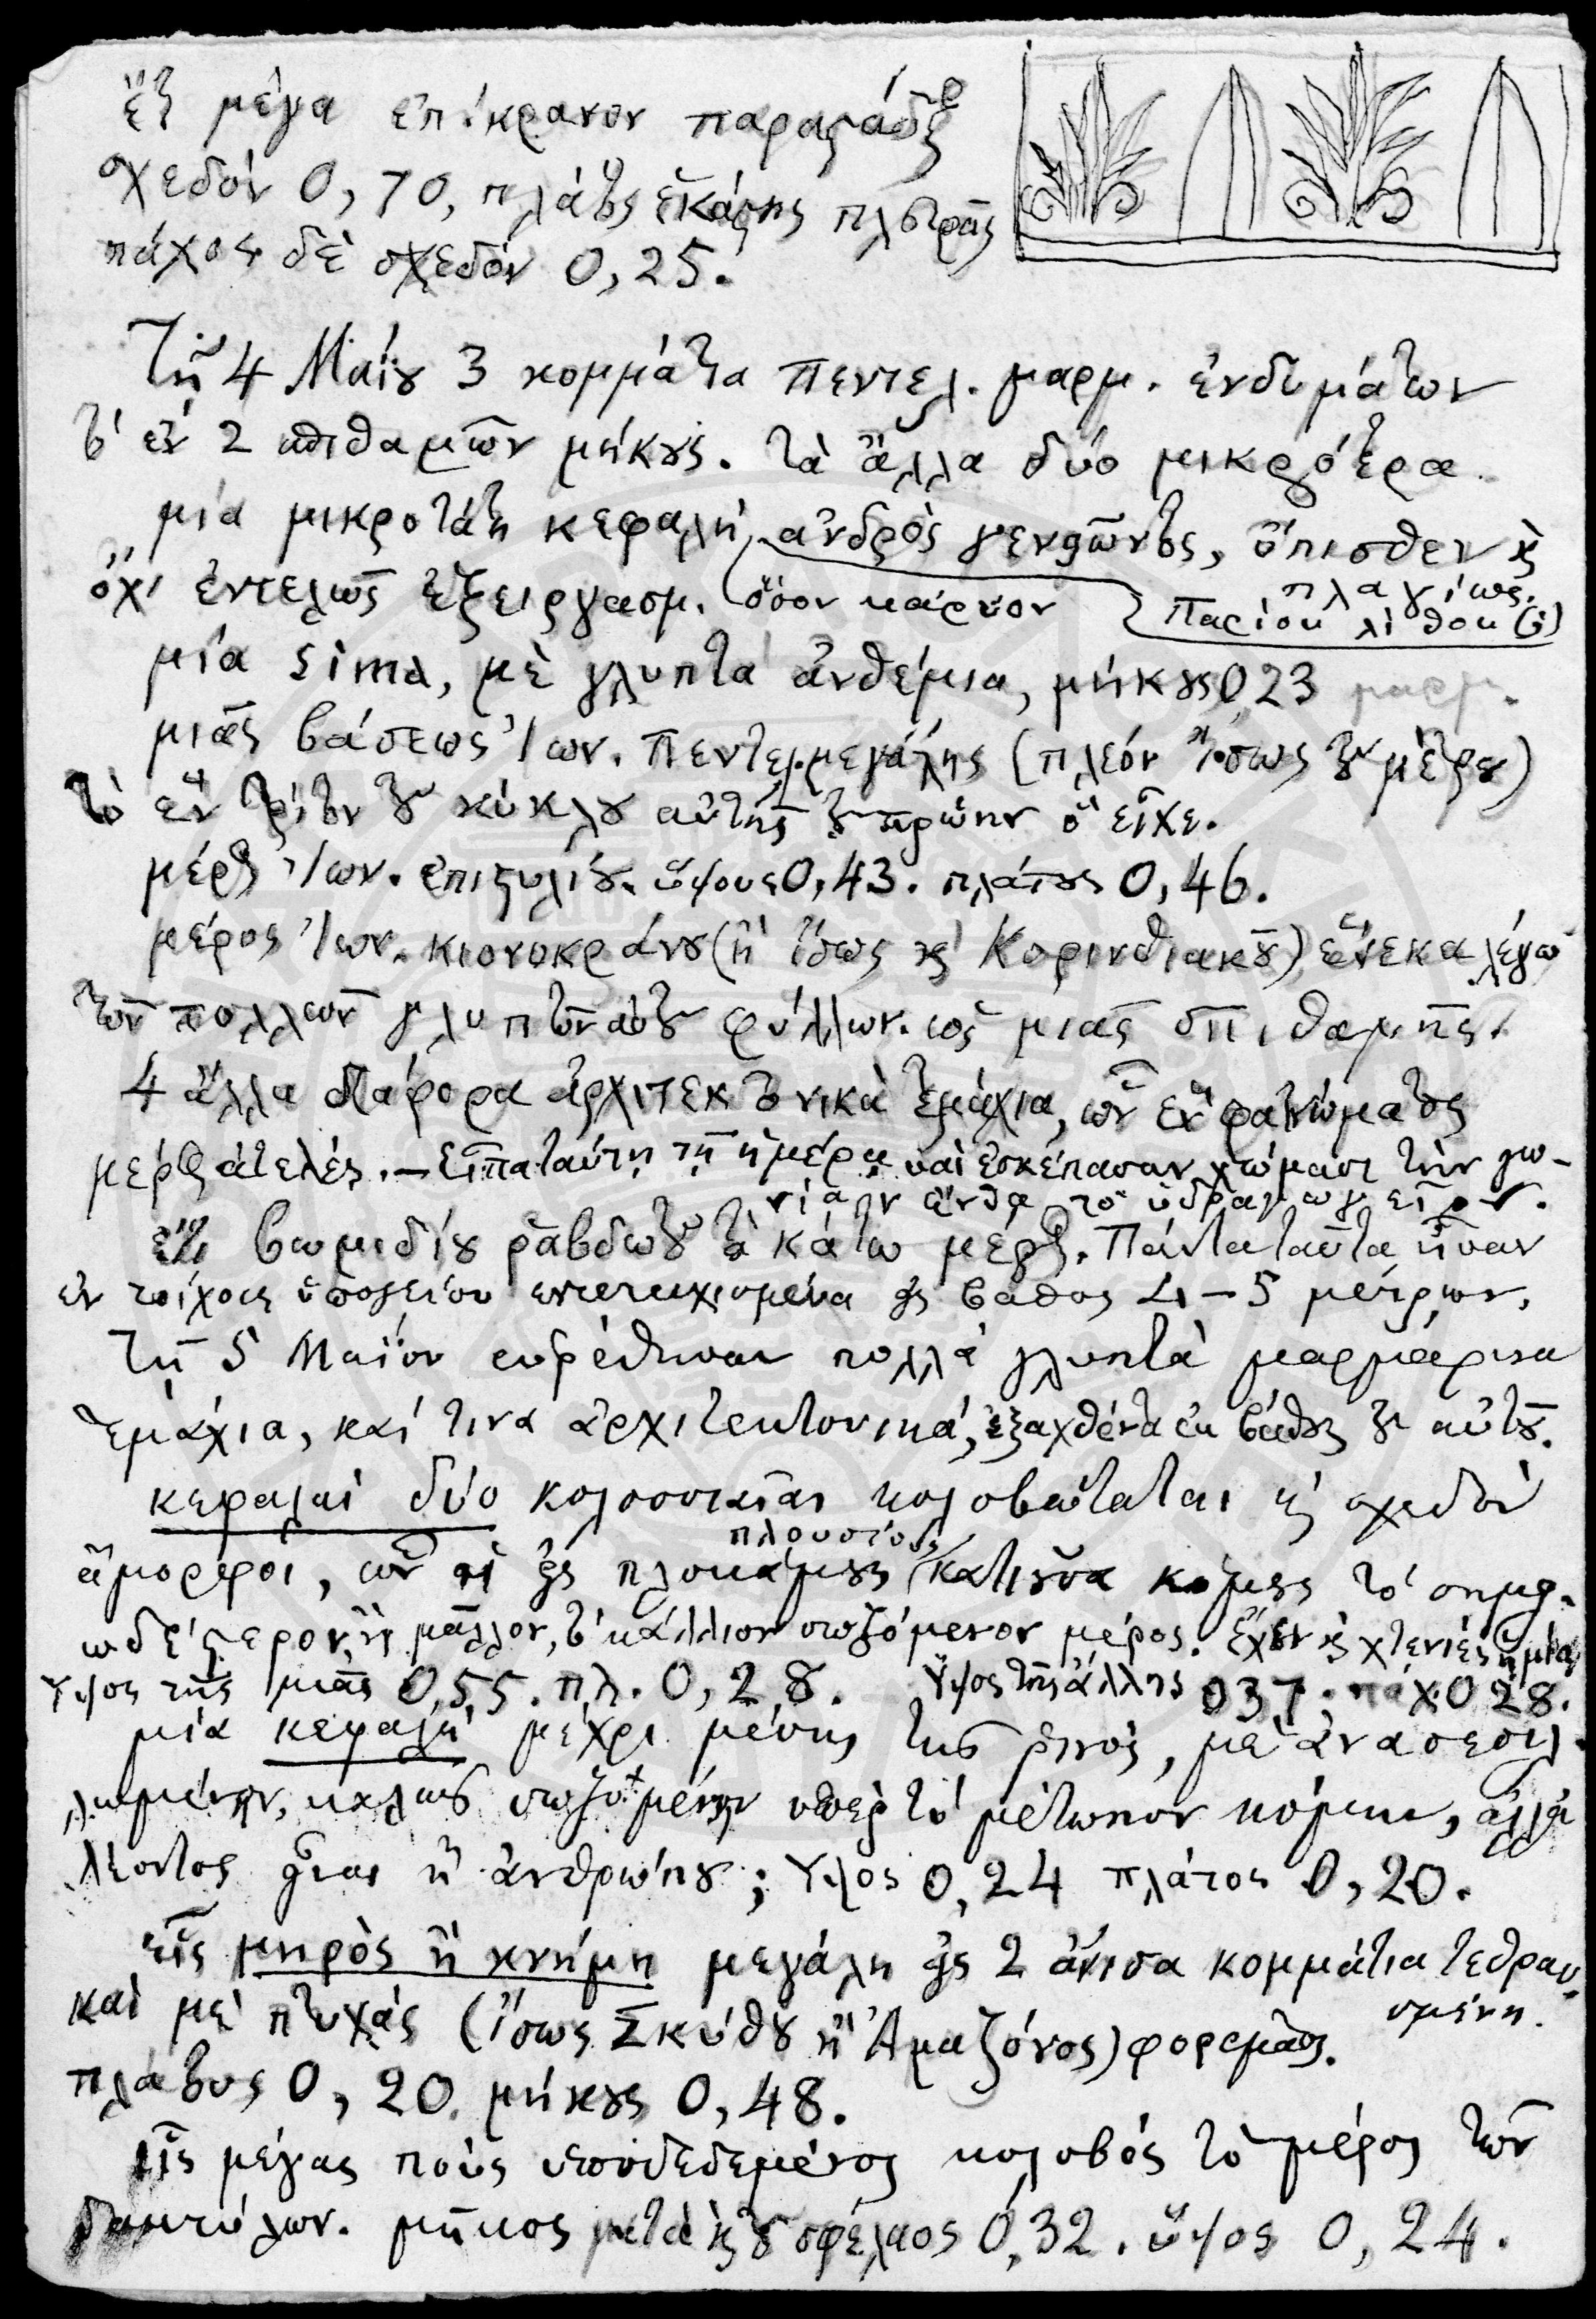 ἓν μέγα ἐπίκρανον παραστάδος
σχεδόν 0,70, πλάτος ἑκάστης πλευρᾶς
πάχος δὲ σχεδόν 0,25.
Τῇ 4 Μαΐου 3 κομμάτια πεντελ. μαρμ. ἐνδυμάτων
τὸ ἓν 2 σπιθαμῶν μήκους. τὰ ἄλλα δύο μικρότερα.
μία μικροτάτη κεφαλὴ ἀνδρὸς γενειῶντος, ὄπισθεν καὶ
πλαγίως.
ὄχι ἐντελῶς ἐξειργασμ. ὅσον κάρυον Παρίου λίθου (;)
μία sima, μὲ γλυπτὰ ἀνθέμια, μήκους 0,23 μαρμ.
μιᾶς βάσεως Ἰων. Πεντελ. μεγάλης (πλέον ἴσως τοῦ μέτρου)
τὸ ἓν τρίτον τοῦ κύκλου αὐτῆς τοῦ πρώην ὃ εἶχε.
μέρος Ἰων. ἐπιστυλίου. ὕψους 0,43. πλάτους 0,46.
μέρος Ἰων. κιονοκράνου (ἢ ἴσως καὶ Κορινθιακοῦ) ἕνεκα λέγω
τῶν πολλῶν γλυπτῶν αὐτοῦ φύλλων. ὡς μιᾶς σπιθαμῆς.
4 ἄλλα διάφορα ἀρχιτεκτονικὰ τεμάχια, ὧν ἓν φατνώματος
μέρος ἀτελές. — ταύτῃ τῇ ἡμέρᾳ καὶ ἐσκέπασαν χώμασι τὴν γω-
νίαν ἔνθα τὸ ὑδραγωγεῖον.
ἔτι βωμιδίου ῥαβδωτοῦ τὸ κάτω μέρος. Πάντα ταῦτα ἦσαν
ἐν τοίχοις ὑπογείου ἐντετειχισμένα εἰς βάθος 4–5 μέτρων.
Τῇ 5 Μαΐου εὑρέθησαν πολλὰ γλυπτὰ μαρμάρινα
τεμάχια, καί τινα ἀρχιτεκτονικά, ἐξαχθέντα ἐκ βάθους τοῦ αὐτοῦ.
κεφαλαὶ δύο κολοσσιαῖαι κολοβώταται καὶ σχεδὸν
πλουσίους
ἄμορφοι, ὧν οἱ εἰς πλοκάμους κατιοῦσα κόμης τὸ σημει-
ωδέστερον, ἢ μᾶλλον, τὸ κάλλιον σωζόμενον μέρος. ἔχει καὶ χτενιὲς ἡ μία
Ὕψος τῆς μιᾶς 0,55. πλ. 0,28. Ὕψος τῆς ἄλλης 0,37. πάχ. 0,28.
μία κεφαλὴ μέχρι μέσης τῆς ῥινός, μὲ ἀνασεσυλ-
λωμένην, καλῶς σωζομένην ὑπὲρ τὸ μέτωπον κόμην, ἀλλὰ
λέοντος εἶναι ἢ ἀνθρώπου; Ὕψος 0,24 πλάτος 0,20.
εἷς μηρὸς ἢ κνήμη μεγάλη εἰς 2 ἄνισα κομμάτια τεθραυ-
σμένη.
καὶ μὲ πτυχάς (ἴσως Σκύθου ἢ Ἀμαζόνος) φορέματος.
πλάτους 0,20 μήκους 0,48.
εἷς μέγας ποὺς ὑποδεδεμένος κολοβός τὸ μέρος τῶν
δακτύλων. μῆκος μετὰ καὶ τοῦ σφέλαος 0,32. ὕψος 0,24.